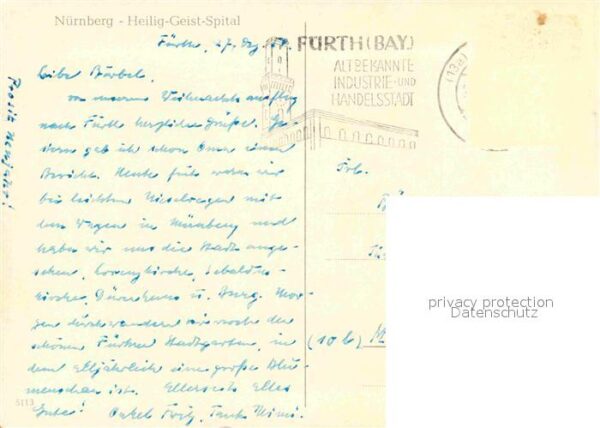 Nürnberg - Heilig-Geist-Spital
Fürth, 27. Dez.
FÜRTH (BAY.)
ALTBEKANNTE
INDUSTRIE-UND
HANDELSSTADT
Prosit Neujahr!
Liebe Bärbel.
von unserem Weihnachtsausflug
nach Fürth herzliche Grüße. Ge-
stern gab ich schon Oma einen
Bericht. Heute früh waren wir
bei leichtem Nieselregen mit
dem Wagen in Nürnberg und
haben wir uns die Stadt ange-
sehen, Lorenzkirche, Sebaldus-
kirche, Dürerhaus u. Burg. Mor-
gen durchwandern wir noch den
schönen Fürther Stadtgarten, in
dem alljährlich eine große Blu-
menschau ist. Allerseits alles
Gute! Onkel Fritz, Tante Mimi.
Frl.
(10b)
5113
privacy protection
Datenschutz